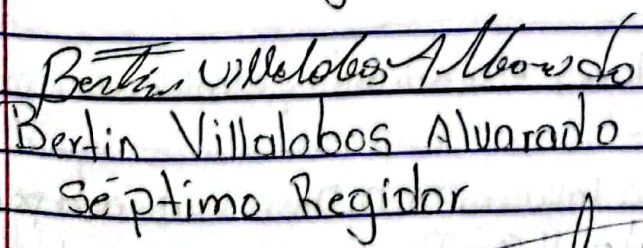 Bertin Villalobos Alvarado
Bertin Villalobos Alvarado
Séptimo Regidor